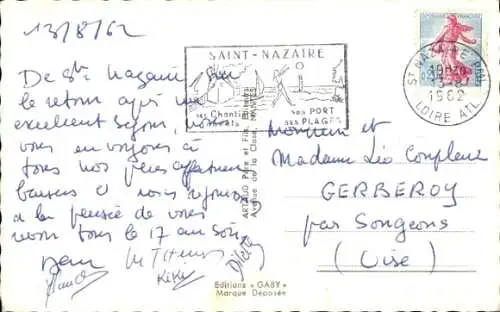 13/8/62
De St Nazaire, sur
le retour après un
excellent séjour, nous
vous envoyons à
tous nos plus affectueux
baisers et nous réjouissons
à la pensée de vous
revoir tous le 17 au soir
KiKi
SAINT-NAZAIRE
ses Chantiers
son PORT
ses PLAGES
ST NAZAIRE PAL
13-8
1962
LOIRE ATL.
ARTAUD Père et Fils, Éditeurs
Avenue de la Close, NANTES
Monsieur et
Madame Léo Compleux
GERBEROY
par Songeons
(Oise)
Editions « GABY »
Marque Déposée